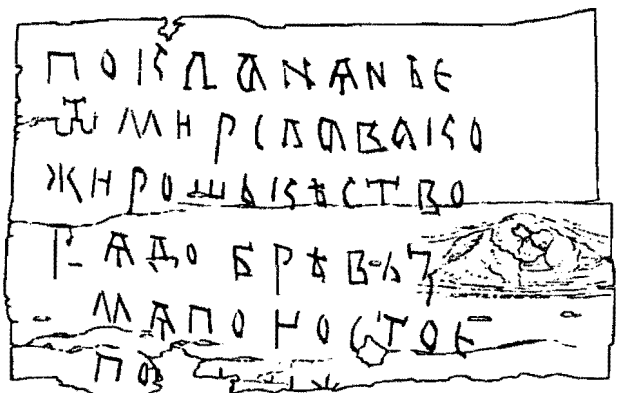 ПОКЛАNѦNЬЕ
ѾМИРСЛАВАКО
ЖИРОШЬКѢСТВО
РѦДОБРѢВЪЗ
МѦПОИОСТОЕ
ПО